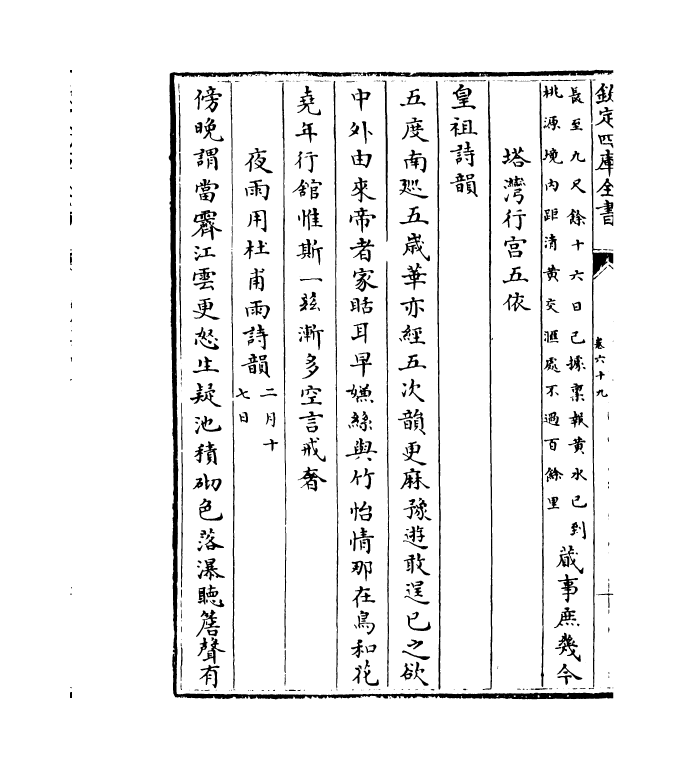 欽定四庫全書
卷六十九
長至九尺餘十六日已據稟報黄水已到
桃源境内距清黄交滙處不過百餘里
蕆事庶幾今
塔灣行宫五依
皇祖詩韻
五度南廵五歲華亦經五次韻更麻豫遊敢逞已之欲
中外由來帝者家聒耳早嫌絲與竹怡情那在鳥和花
堯年行舘惟斯一兹漸多空言戒奢
夜雨用杜甫雨詩韻二月十
七日
傍晚謂當霽江雲更怒生疑池積砌色落瀑聽簷聲有